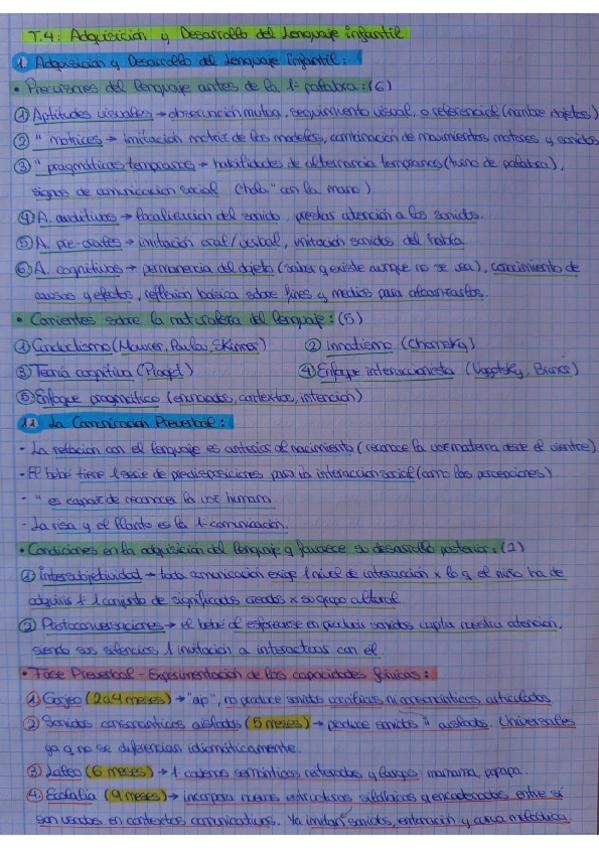 T.4: Adquisición y Desarrollo del Lenguaje infantil
1. Adquisición y Desarrollo del lenguaje infantil:
• Precursores del lenguaje antes de la 1ª palabra: (6)
① Aptitudes visuales → observación mutua, seguimiento visual, o referencial (nombre objetos)
② " motrices → imitación motriz de los modelos, combinación de movimientos motores y sonidos
③ " pragmáticas tempranas → habilidades de alternancia tempranas (turno de palabra),
signos de comunicación social ("hola" con la mano)
④ A. auditivas → focalización del sonido, prestar atención a los sonidos.
⑤ A. pre-orales → imitación oral/verbal, imitación sonidos del habla
⑥ A. cognitivas → permanencia del objeto (saber q existe aunque no se vea), conocimiento de
causas y efectos, reflexión básica sobre fines y medios para alcanzarlos.
• Corrientes sobre la naturaleza del lenguaje: (5)
① Conductismo (Mowrer, Paulov, Skinner) ② Innatismo (Chomsky)
③ Teoría cognitiva (Piaget) ④ Enfoque interaccionista (Vygotsky, Bruner)
⑤ Enfoque pragmático (enunciados, contextos, intención)
1.1. La Comunicación Preverbal:
- La relación con el lenguaje es anterior al nacimiento (reconoce la voz materna desde el vientre)
- El bebé tiene 1 serie de predisposiciones para la interacción social (como las percepciones)
- " es capaz de reconocer la voz humana
- La risa y el llanto es la 1ª comunicación.
• Condiciones en la adquisición del lenguaje y favorece su desarrollo posterior: (2)
① Intersubjetividad → toda comunicación exige 1 nivel de interacción x lo q el niño ha de
adquirir 1 conjunto de significados creados x su grupo cultural
② Protoconversaciones → el bebé al esforzarse en producir sonidos capta nuestra atención,
siendo sus silencios 1 invitación a interactuar con él.
• Fase Preverbal - Experimentación de las capacidades fónicas:
① Gorjeo (2 a 4 meses) → "ajo", no produce sonidos vocálicos ni consonánticos articulados
② Sonidos consonánticos aislados (5 meses) → produce sonidos " aislados. Universales
ya q no se diferencian idiomáticamente.
③ Laleo (6 meses) → 1 cadenas reiteradas y largas: mamama, papapa.
④ Ecolalia (9 meses) → incorpora nuevas estructuras silábicas y encadenados entre sí
son usados en contextos comunicativos. Ya imitan sonidos, entonación y curva melódica.